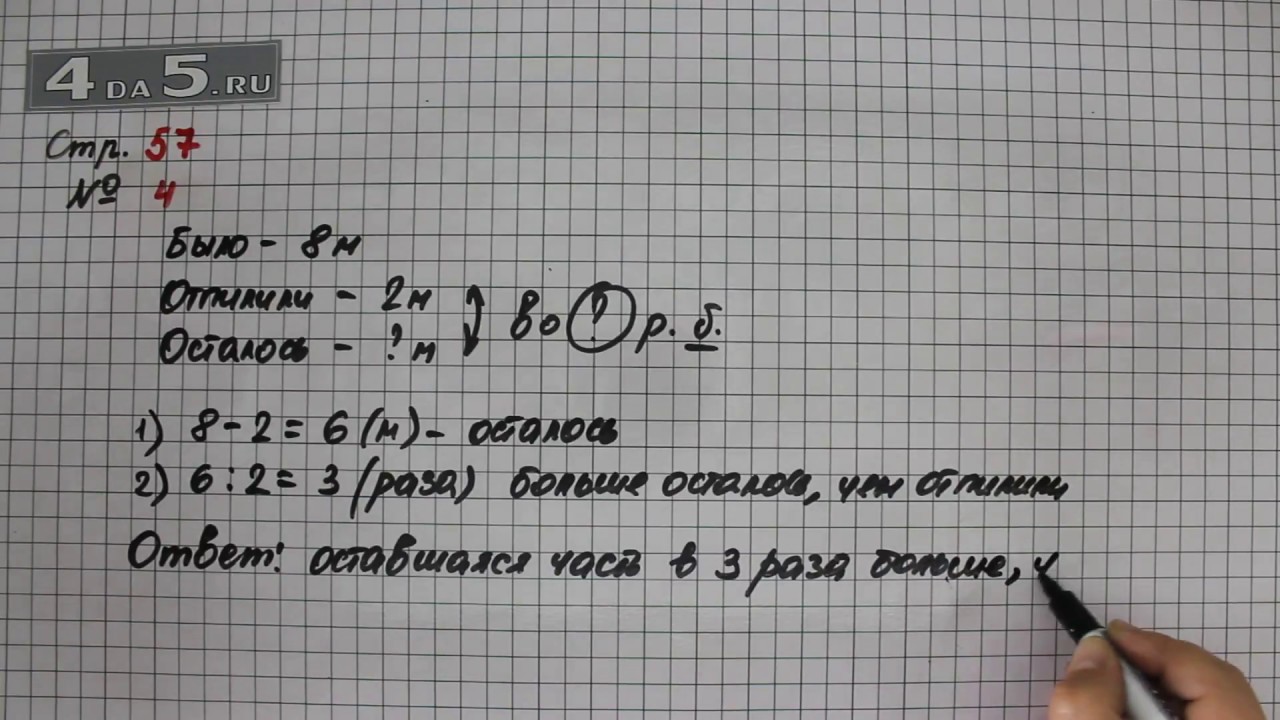 4 DA 5.RU
Стр. 57
№ 4
Было - 8 м
Отпилили - 2 м
Осталось - ? м
во ? р. б.
1) 8 - 2 = 6 (м) - осталось
2) 6 : 2 = 3 (раза) больше осталось, чем отпилили
Ответ: оставшаяся часть в 3 раза больше, ч